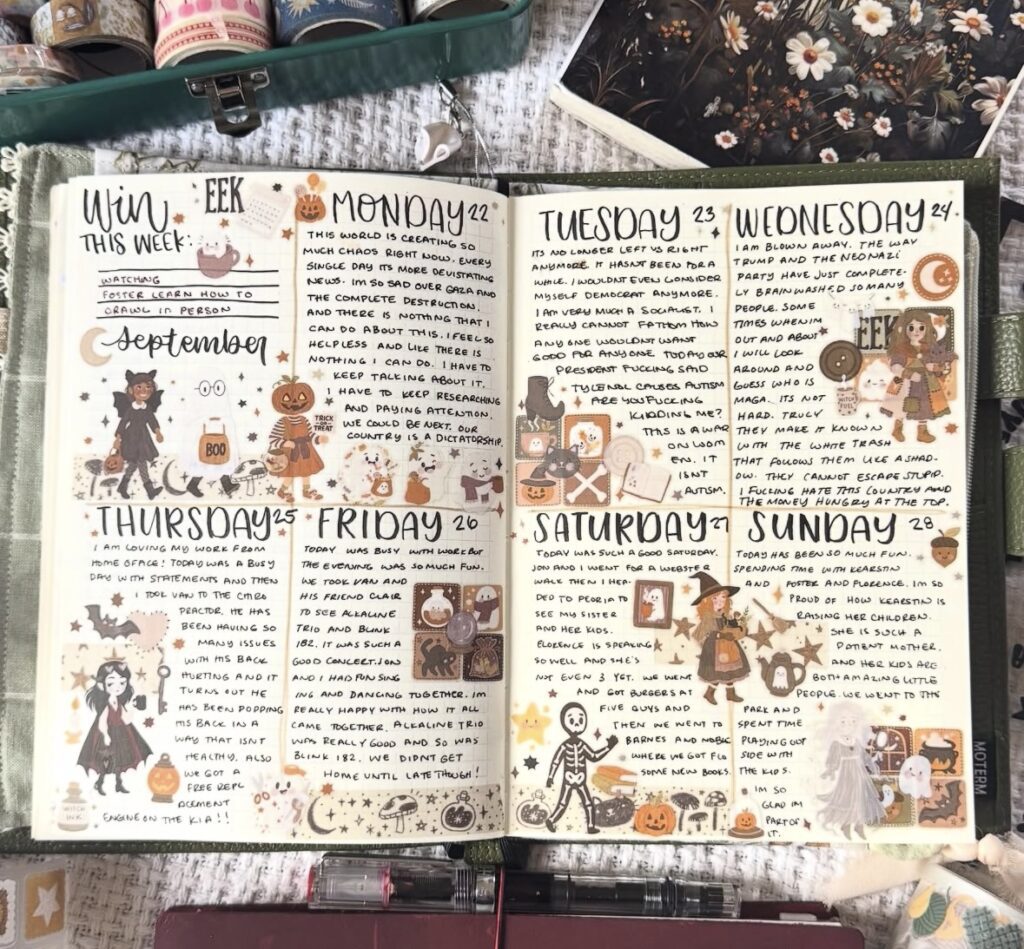 Win
THIS WEEK:
EEK
WATCHING
FOSTER LEARN HOW TO
CRAWL IN PERSON
September
BOO
TRICK
OR
TREAT
MONDAY 22
THIS WORLD IS CREATING SO
MUCH CHAOS RIGHT NOW. EVERY
SINGLE DAY ITS MORE DEVISTATING
NEWS. IM SO SAD OVER GAZA AND
THE COMPLETE DESTRUCTION.
AND THERE IS NOTHING THAT I
CAN DO ABOUT THIS. I FEEL SO
HELPLESS AND LIKE THERE IS
NOTHING I CAN DO. I HAVE TO
KEEP TALKING ABOUT IT.
I HAVE TO KEEP RESEARCHING
AND PAYING ATTENTION.
WE COULD BE NEXT. OUR
COUNTRY IS A DICTATORSHIP.
TUESDAY 23
ITS NO LONGER LEFT VS RIGHT
ANYMORE. IT HASNT BEEN FOR A
WHILE. I WOULDNT EVEN CONSIDER
MYSELF DEMOCRAT ANYMORE.
I AM VERY MUCH A SOCIALIST. I
REALLY CANNOT FATHOM HOW
ANYONE WOULDNT WANT
GOOD FOR ANYONE. TODAY OUR
PRESIDENT FUCKING SAID
TYLENOL CAUSES AUTISM
ARE YOU FUCKING
KIDDING ME?
THIS IS A WAR
ON WOM
EN. IT
ISNT
AUTISM.
WEDNESDAY 24
I AM BLOWN AWAY. THE WAY
TRUMP AND THE NEONAZI
PARTY HAVE JUST COMPLETE-
LY BRAINWASHED SO MANY
PEOPLE. SOME
TIMES WHEN IM
OUT AND ABOUT
I WILL LOOK
AROUND AND
GUESS WHO IS
MAGA. ITS NOT
HARD. TRULY
THEY MAKE IT KNOWN
WITH THE WHITE TRASH
THAT FOLLOWS THEM LIKE A SHAD-
OW. THEY CANNOT ESCAPE STUPID.
I FUCKING HATE THIS COUNTRY AND
THE MONEY HUNGRY AT THE TOP.
EEK
WITCH
FUEL
THURSDAY 25
I AM LOVING MY WORK FROM
HOME OFFICE! TODAY WAS A BUSY
DAY WITH STATEMENTS AND THEN
I TOOK VAN TO THE CHIRO
PRACTOR. HE HAS
BEEN HAVING SO
MANY ISSUES
WITH HIS BACK
HURTING AND IT
TURNS OUT HE
HAS BEEN POPPING
HIS BACK IN A
WAY THAT ISNT
HEALTHY. ALSO
WE GOT A
FREE REPL
ACEMENT
ENGINE ON THE KIA!!
WITCH
INK
FRIDAY 26
TODAY WAS BUSY WITH WORK BUT
THE EVENING WAS SO MUCH FUN.
WE TOOK VAN AND
HIS FRIEND CLAIR
TO SEE ALKALINE
TRIO AND BLINK
182. IT WAS SUCH A
GOOD CONCERT. JON
AND I HAD FUN SING
ING AND DANCING TOGETHER. IM
REALLY HAPPY WITH HOW IT ALL
CAME TOGETHER. ALKALINE TRIO
WAS REALLY GOOD AND SO WAS
BLINK 182. WE DIDNT GET
HOME UNTIL LATE THOUGH!
SATURDAY 27
TODAY WAS SUCH A GOOD SATURDAY.
JON AND I WENT FOR A WEBSTER
WALK THEN I HEA-
DED TO PEORIA TO
SEE MY SISTER
AND HER KIDS.
FLORENCE IS SPEAKING
SO WELL AND SHE'S
NOT EVEN 3 YET. WE WENT
AND GOT BURGERS AT
FIVE GUYS AND
THEN WE WENT TO
BARNES AND NOBLE
WHERE WE GOT FLO
SOME NEW BOOKS.
SUNDAY 28
TODAY HAS BEEN SO MUCH FUN.
SPENDING TIME WITH KEARSTIN
AND FOSTER AND FLORENCE. IM SO
PROUD OF HOW KEARSTIN IS
RAISING HER CHILDREN.
SHE IS SUCH A
PATIENT MOTHER.
AND HER KIDS ARE
BOTH AMAZING LITTLE
PEOPLE. WE WENT TO THE
PARK AND
SPENT TIME
PLAYING OUT
SIDE WITH
THE KIDS.
IM SO
GLAD IM
PART OF
IT.
MOTERM